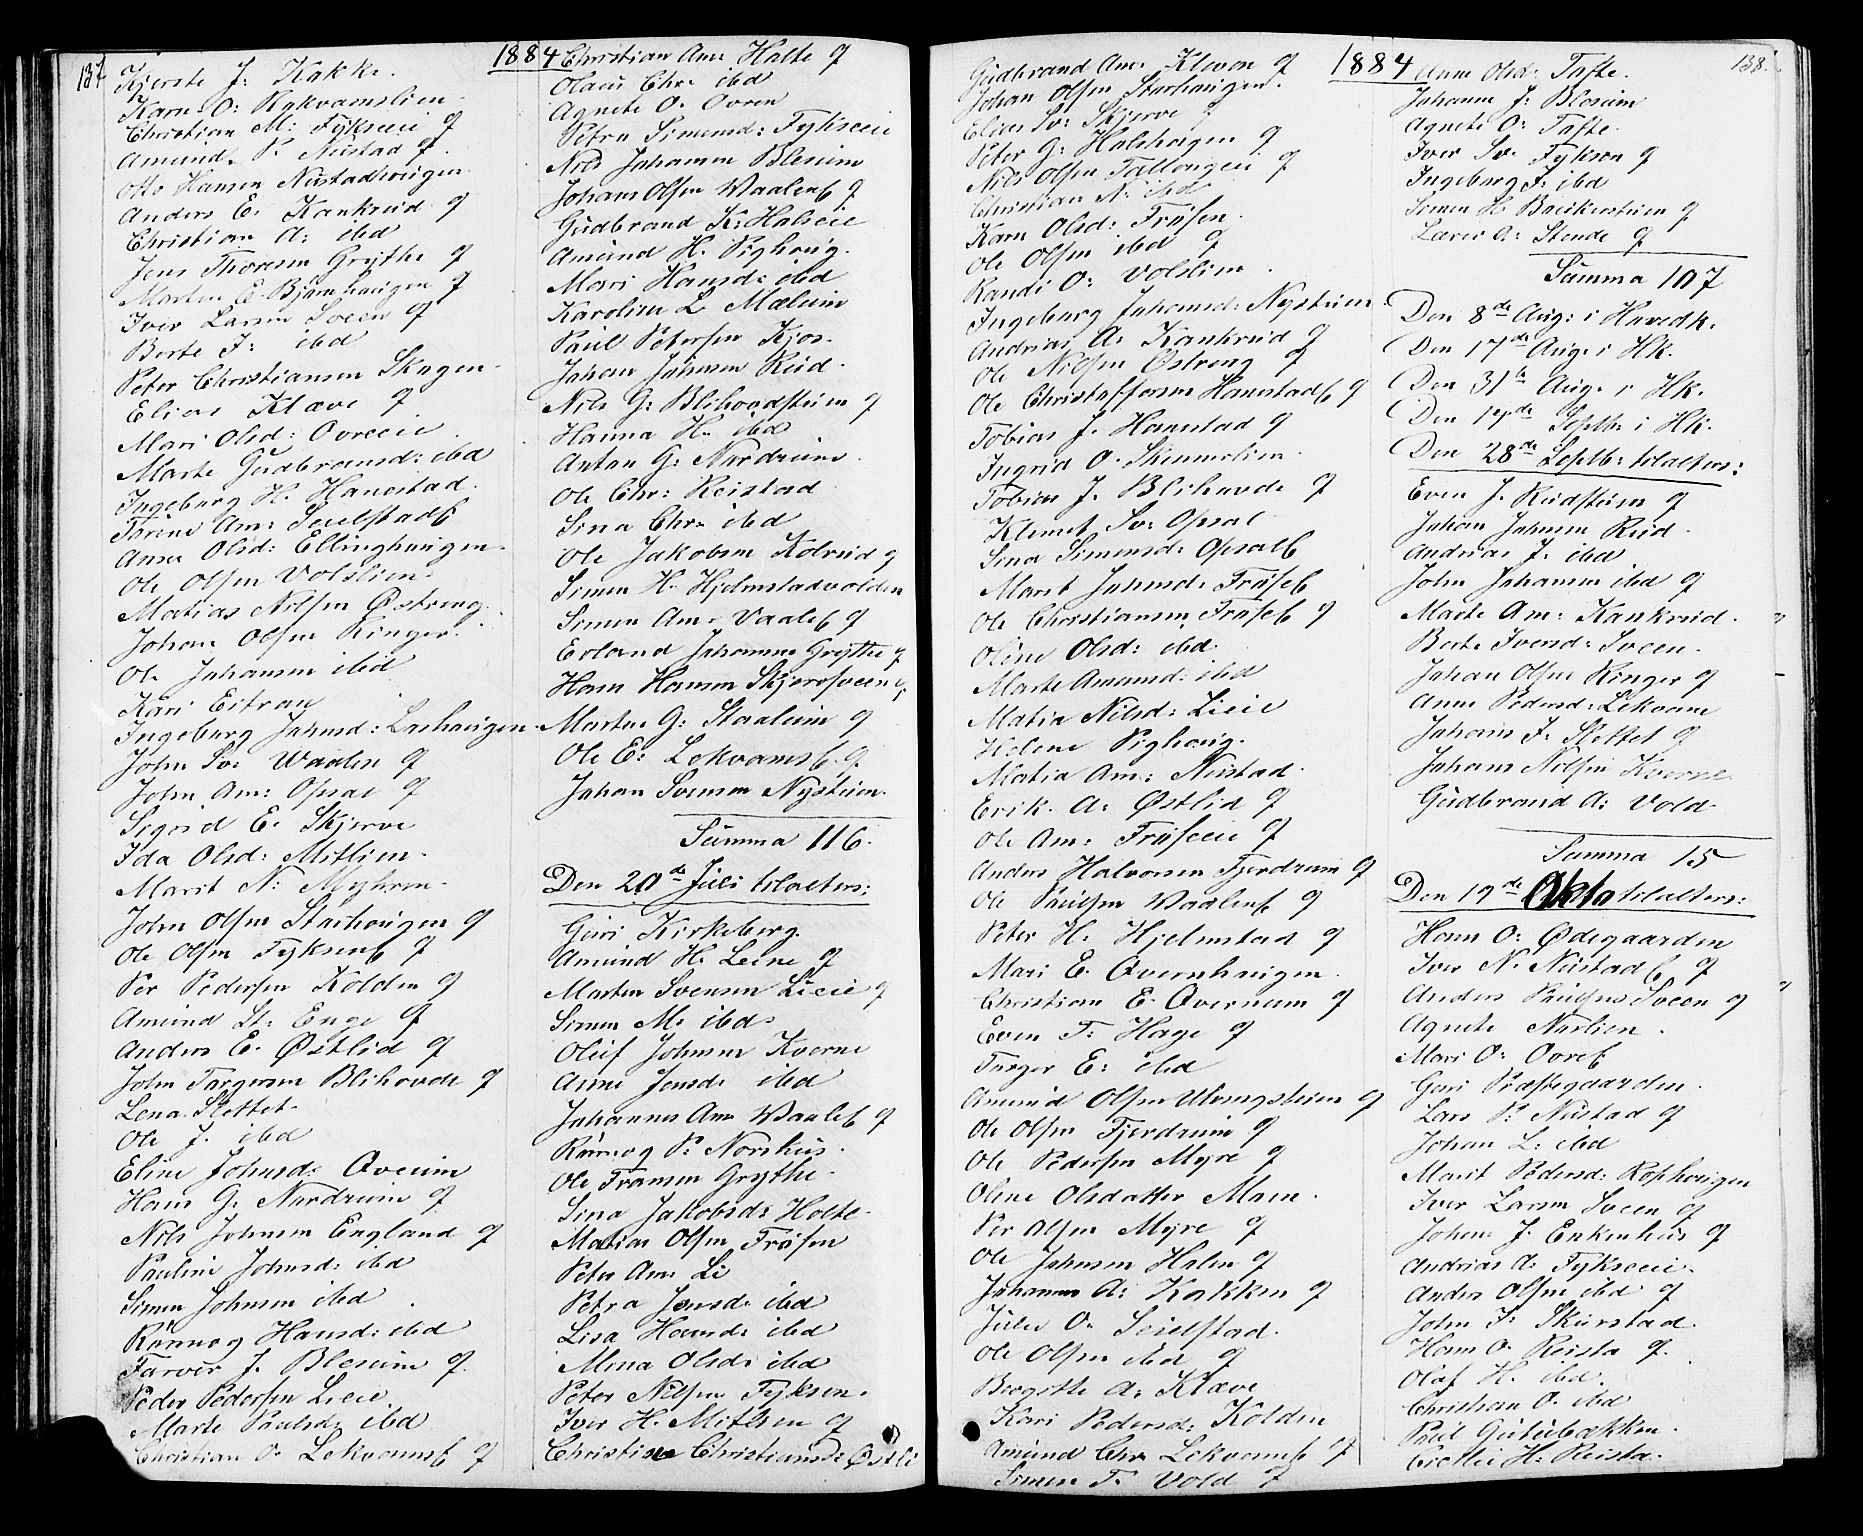 137
1884
Kjerste J: Kakke.
Karn O: Kakvamslien
Christian M: Fykseeie og
Amund P. Nustad og
Otto Hansen Nustadhougen
Anders E. Kankrud og
Christian A: ibd
Jens Thoresen Grythe og
Morten E. Bjørnhaugen og
Iver Larsen Sveen og
Berte I: ibd
Peter Christiansen Skogen
Elias Klæve og
Mari Olsd: Ovreeie
Marte Gudbrandsd: ibd
Ingeborg H. Hanestad
Torine Am: Seielstad
Anne Olsd: Ellinghaugen
Ole Olsen Volslien
Matias Nilsen Østreng
Johan Olsen Ringer
Ole Johansen ibd
Kari Eitran
Ingeborg Johnsd: Lashaugen
John Sv: Waalen og
John Am: Opsal og
Sigrid E. Skjerve
Ida Olsd: Mitlien
Marit N: Myhren
John Olsen Starhougen og
Ole Olsen Fyksen og
Per Pedersen Kolden og
Amund St: Enge og
Anders E. Østlid og
John Torgersen Blihovde og
Lena Slettet
Ole J. ibd
Eline Johnsd: Overum
Hans G. Nordrum og
Nils Johnsen England og
Pauline Johnsd: ibd
Simen Johnsen ibd
Rønnog Hansd: ibd
Torver J. Blesum og
Peder Pedersen Lieie
Marte Paulsd: ibd
Christian O. Lekvams og
Christian Am: Holte og
Olaus Chr: ibd
Agnete O. Ovren
Petra Simensd: Fykseeie
Nils Johannes Blesum
Johans Olsen Waalen og
Gudbrand K: Halseie
Amund H. Pighoug
Mari Hansd: ibd
Karoline L. Mælum
Paul Petersen Kjos
Johan Johnsen Rud
Nils G: Blihovdstuen og
Hanna H. ibd
Anton G: Nordrum
Ole Chr: Reistad
Sina Chr: ibd
Ole Jakobsen Kolrud og
Simen H. Hjelmstadvolden
Simen Am: Vaale og
Erland Johannes Grythe og
Hans Hansen Skjervsveen
Morten G: Staaleim og
Ole E: Lekvams og
Johan Svensen Nystuen
Summa 116.
Den 20de Juli ttl alters:
Guri Kirkeberg
Amund H. Leine og
Morten Svensen Lieie og
Simen M. ibd
Oluf Johnsen Kverne
Anne Jonsd: ibd
Johannes Am Waale og
Rønnog P: Norshus
Ole Fransen Grythe
Sina Jakobsd: Holte
Matias Olsen Frøsen
Peter Am: Li
Petra Jonsd: ibd
Lisa Hansd: ibd
Mena Olsd: ibd
Peter Nilsen Fyksen
Iver H. Mitlien og
Christine Christiansd: Østli
1884
138.
Gudbrand Am: Kleven og
Johan Olsen Starhaugen
Elias Sv: Skjerve
Peter G: Halshagen og
Nils Olsen Tallongeie og
Christian N: ibd
Karn Olsd: Frøsen
Ole Olsen ibd og
Randi O: Volslien
Ingeborg Johansd: Nystuen
Andreas A: Kankrud og
Ole Nilsen Østreng og
Ole Christoffersen Hanestad og
Tobias J. Hanestad og
Ingrid O. Skimmelien
Tobias J. Blihovde og
Klemet Sv: Opsal
Sina Simensd: Opsal
Marit Johnsd: Frøse
Ole Christiansen Frøse og
Oline Olsd: ibd
Marte Amund: ibd
Matia Nilsd: Lieie
Helene Pighoug
Matia Am: Nustad
Erik A: Østlid og
Ole Am: Frøseeie og
Anders Halvorsen Fjerdrum og
Ole Paulsen Waalen og
Peter H. Hjelmstad og
Mari E. Overnhaugen
Christian E. Overnum og
Even T: Hage og
Torger E: ibd
Amund Olsen Ulvengstuen og
Ole Olsen Fjerdrum og
Ole Pedersen Myre og
Oline Olsdatter Moen
Per Olsen Myre og
Ole Johnsen Halen og
Johannes A: Kakken og
Julie O. Seielstad
Ole Olsen ibd og
Bergitte A: Klæve
Kari Pedersd: Kolden
Amund Chr Lekvams og
Simen T. Vold og
Anne Olsd: Tofte
Johanne J: Blesum
Agnete O: Tofte
Iver Sv. Fyksen og
Ingeborg I: ibd
Simen H. Brækenstuen og
Lærer A: Stende og
Summa 107
Den 8de Aug: i Hovedk.
Den 17de Aug: i Hk.
Den 31te Aug. i Hk.
Den 14de Septb: i Hk.
Den 28de Septb: ttl alters:
Even J. Rudstuen og
Johan Johnsen Rud
Andreas J. ibd
John Johansen ibd og
Marte Am: Kankrud
Berte Iversd: Sveen
Johan Olsen Ringer og
Anne Pedersd: Lekvam
Johans F. Slettet og
Johans Nilsen Kverne
Gudbrand A: Vold
Summa 15
Den 19de Okto ttl alters:
Hans O: Ødegaarden
Iver N. Nustad og
Anders Paulsen Sveen og
Agnete Norlien
Mari O: Ovre
Guri Præstegaarden
Lars P: Nustad og
Johan L: ibd
Marit Pedersd: Rophougen
Iver Larsen Sveen og
Johan J. Enkenhus og
Andreas A. Fykseeie
Anders Olsen ibd og
John I: Skurstad
Hans O. Reista og
Olaf H. ibd
Christian O. ibd
Paul Gutubækken
Cicilie H: Reista.